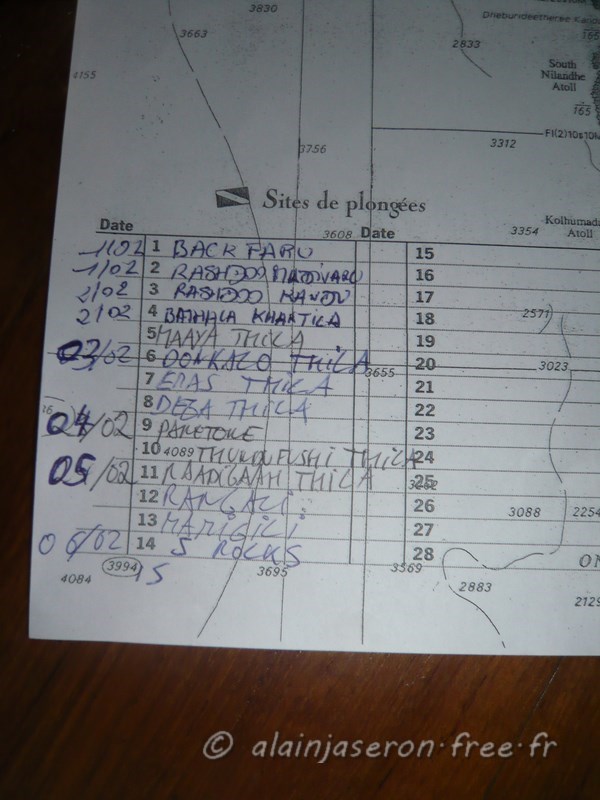 3830
Drieburideetheree Kandu
3663
165
2833
4155
South
Nilandhe
Atoll
165
Fl(2)10s10M
3312
3756
Sites de plongées
Kolhumadu
Atoll
Date
3608 Date
3354
1/02 1 BACK FARU 15
1/02 2 RASHDOO MADIVARU 16
2/02 3 RASHDOO KANDU 17
2/02 4 BATHALA KHANTILA 18
2571
5 MAAYA THILA 19
03/02 6 DONKALO THILA 20
3655
3023
7 EMAS THILA 21
8 DEGA THILA 22
16
04/02 9 PANETONE 23
10 4089 THUNDUFUSHI THILA 24
05/02 11 RAADIGAAH THILA 25
12 RANGALI 26
3088
2254
13 MAMIGILI 27
06/02 14 5 ROCKS 28
3994 15
3695
3569
4084
2883
2129
© alainjaseron.free.fr